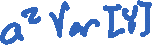 a² Var [Y]